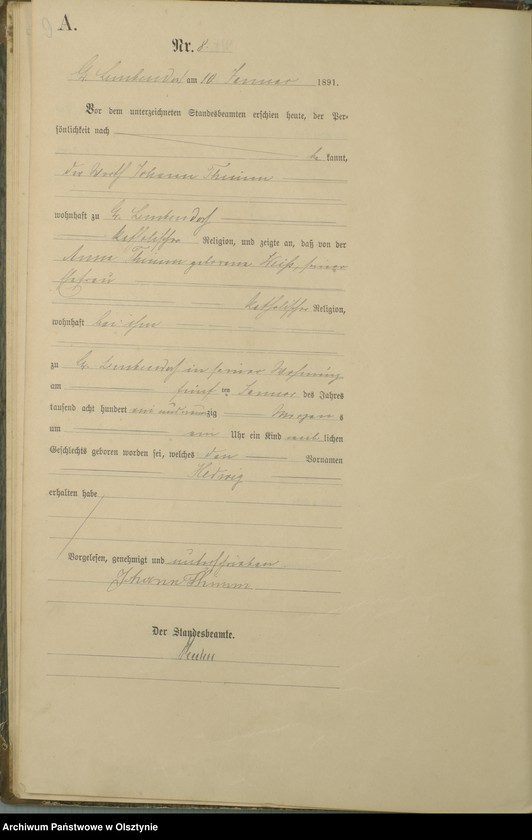 A.
Nr. 8
Gr. Lemkendorf am 10 Januar 1891.
Vor dem unterzeichneten Standesbeamten erschien heute, der Per-
sönlichkeit nach
be kannt,
der Wirth Johann Thimm
wohnhaft zu Gr. Lemkendorf
katholischer Religion, und zeigte an, daß von der
Anna Thimm geborene seiner
Ehefrau
katholischer Religion,
wohnhaft bei ihm
zu Gr. Lemkendorf in seiner Wohnung
am fünf ten Januar des Jahres
tausend acht hundert ein und neunzig Morgen s
um ein Uhr ein Kind weib lichen
Geschlechts geboren worden sei, welches den Vornamen
Hedwig
erhalten habe
Vorgelesen, genehmigt und unterschrieben
Johann Thimm
Der Standesbeamte.
Archiwum Państwowe w Olsztynie